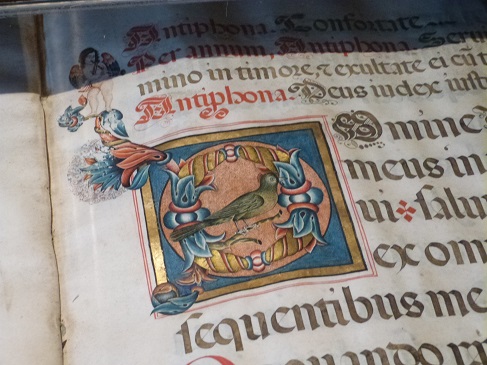 Antiphona. Confortate
Per annum, Antiphona. Serui
mino in timore & exultate ei cū t
Antiphona. Deus iudex iust
Omine
meus in
ui salu
ex om
sequentibus me